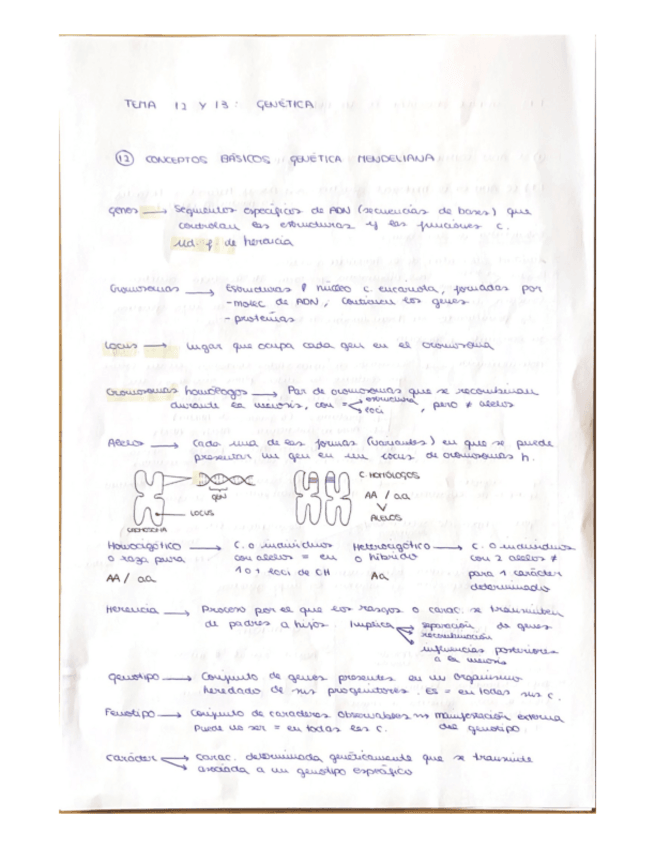 TEMA 12 Y 13: GENÉTICA
12 CONCEPTOS BÁSICOS GENÉTICA MENDELIANA
genes → Segmentos específicos de ADN (secuencias de bases) que
controlan las estructuras y las funciones c.
Ud. f. de herencia
Cromosomas → Estructuras núcleo c. eucariota, formadas por
- molec de ADN, contienen los genes
- proteínas
Locus → Lugar que ocupa cada gen en el cromosoma
Cromosomas homólogos → Par de cromosomas que se recombinan
durante la meiosis, con = estructura
loci , pero ≠ alelos
Alelos → Cada una de las formas (variantes) en que se puede
presentar un gen en un locus de cromosomas h.
GEN
LOCUS
CROMOSOMA
C. HOMÓLOGOS
AA / aa
ALELOS
Homocigótico → C. o individuos
o raza pura con alelos = en
1 o + loci de CH
AA / aa
Heterocigótico → C. o individuos
o híbrido con 2 alelos ≠
Aa para 1 carácter
determinado
Herencia → Proceso por el que los rasgos o carac. se transmiten
de padres a hijos. Implica → separación de genes
recombinación
influencias posteriores
a la meiosis
genotipo → Conjunto de genes presentes en un organismo
heredado de sus progenitores. Es = en todas sus c.
Fenotipo → Conjunto de caracteres observables → manifestación externa
Puede no ser = en todas las c. del genotipo.
carácter → carac. determinada genéticamente que se transmite
→ asociada a un genotipo específico